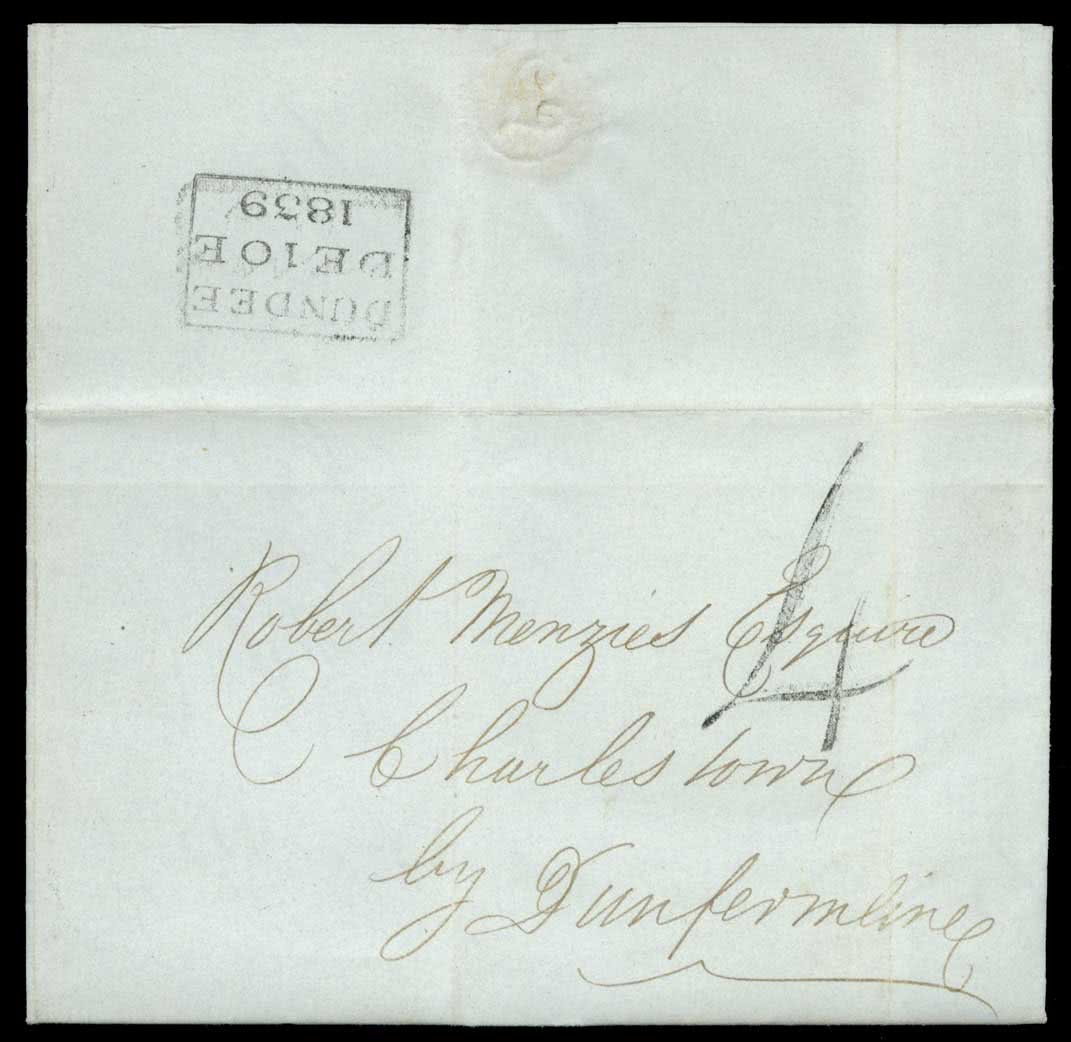 DUNDEE
DE10E
1839
4
Robert Menzies Esquire
Charlestown
by Dunfermline